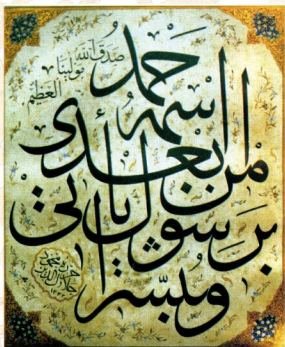 ومبشرا
برسول ياتى
من بعدى
اسمه احمد
صدق الله
مولينا
العظيم